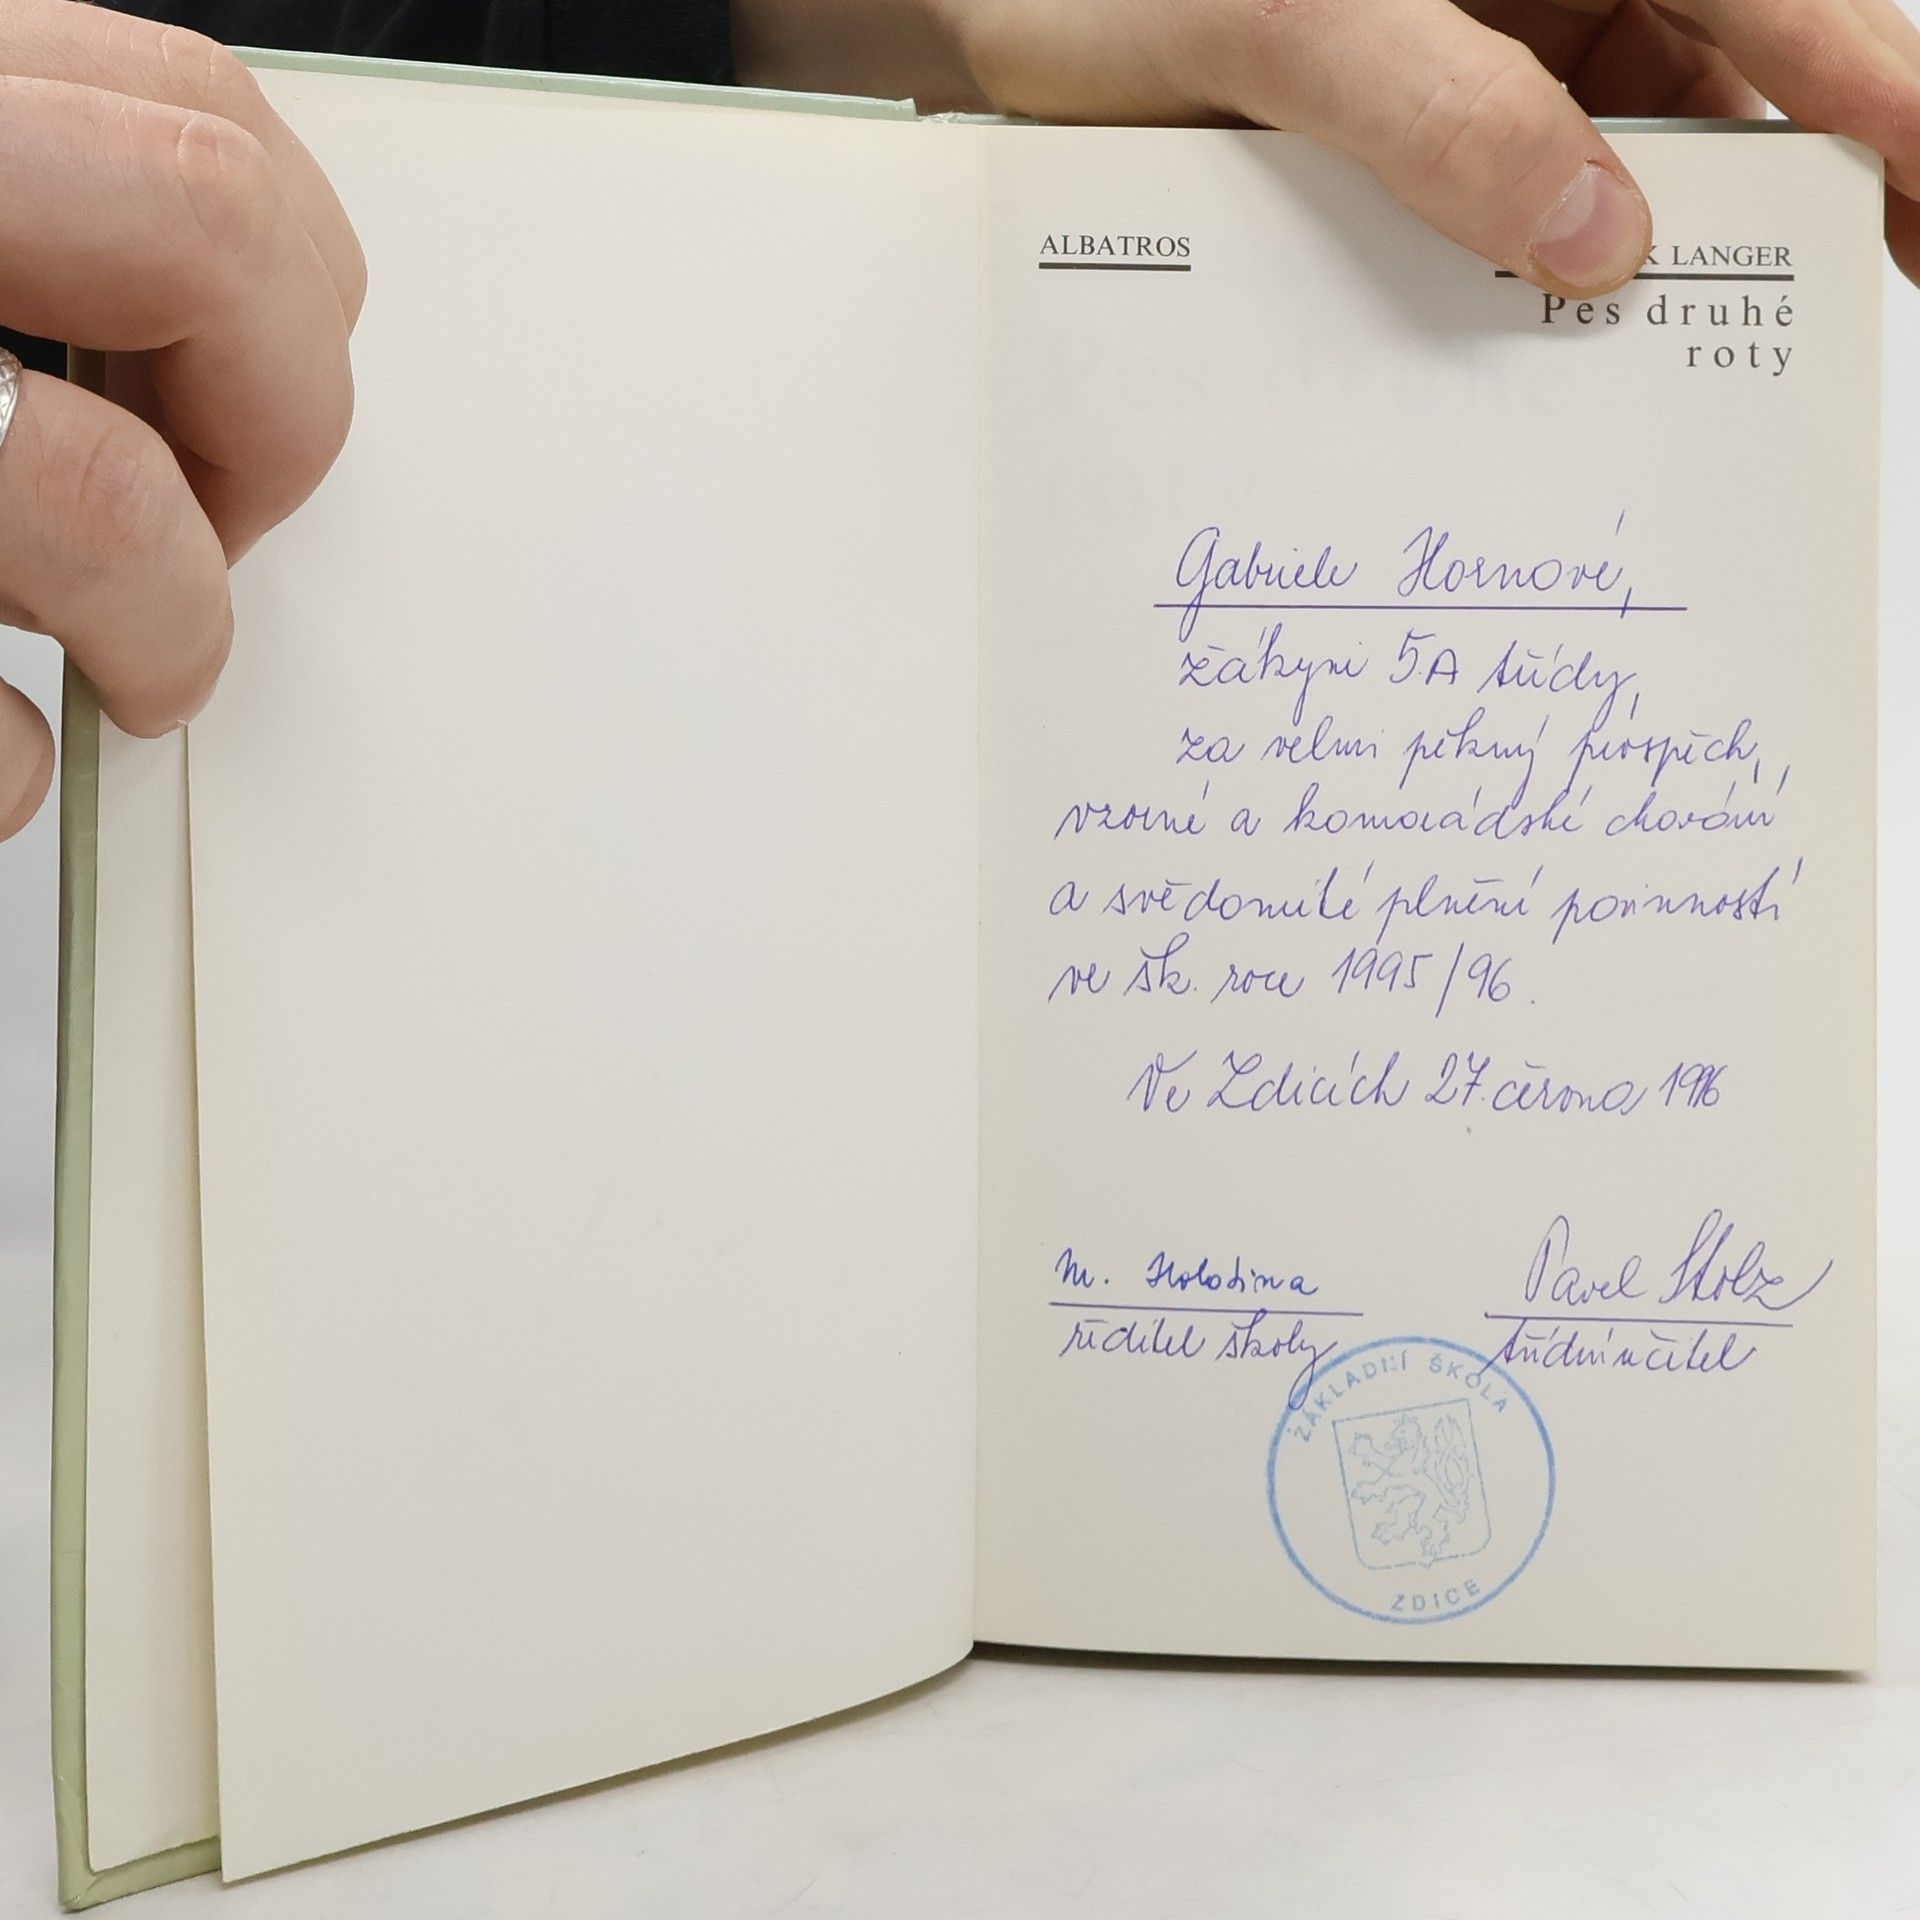 ALBATROS
K LANGER
Pes druhé
roty
Gabriele Hornové,
žákyni 5.A třídy,
za velmi pěkný prospěch,
vzorné a kamarádské chování
a svědomité plnění povinností
ve šk. roce 1995/96.
Ve Zdicích 27. června 1996
M. Holotina
ředitel školy
Pavel Stolz
třídní učitel
ZÁKLADNÍ ŠKOLA
ZDICE